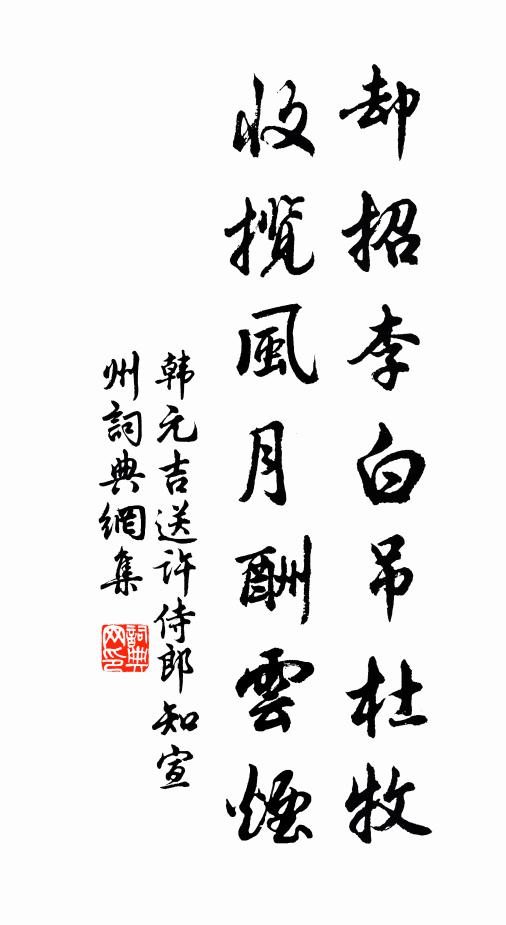 却招李白吊杜牧
收揽風月酬雲煙
韩元吉送许侍郎知宣
州詞典網集
詞典网印